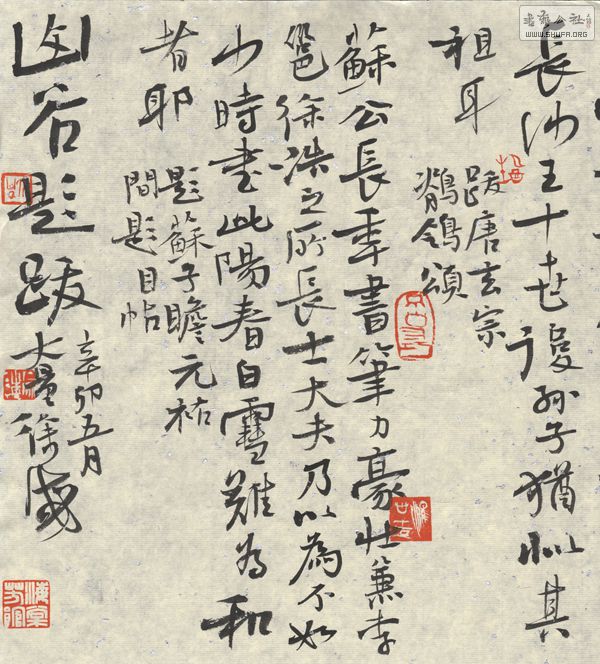 書法公社
WWW.SHUFA.ORG
長沙王十世後孫子猶似其
祖耳
跋唐玄宗
鶺鴒頌
蘇公長年書筆力豪壯兼李
邕徐浩之所長士大夫乃以為不如
少時書此陽春白雪難為和
者耶
題蘇子瞻元祐
間題目帖
山谷題跋
辛卯五月
大量徐盛